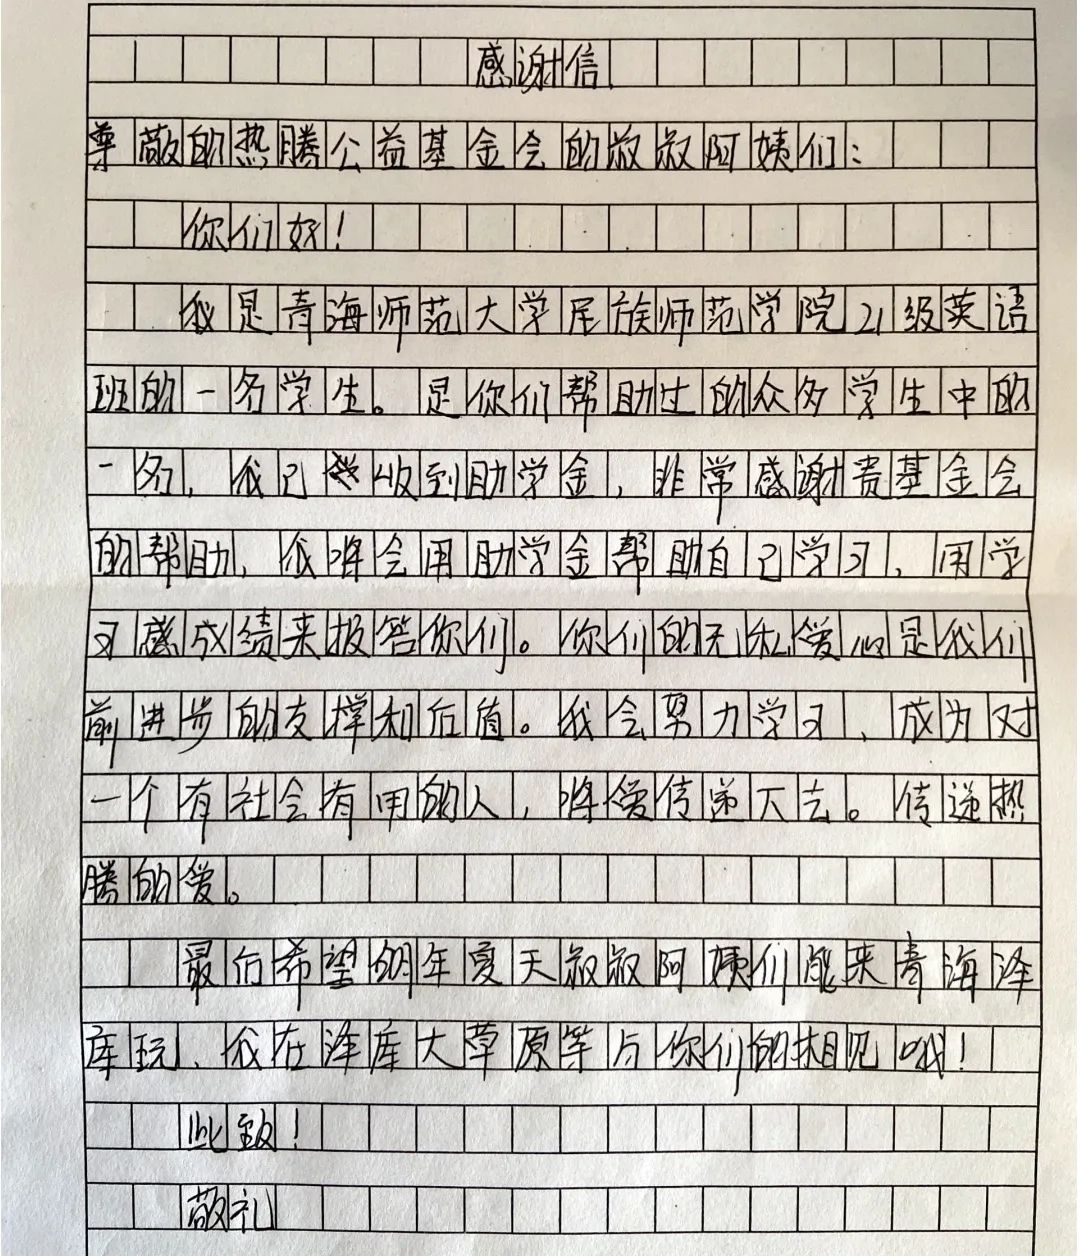 感谢信
尊敬的热腾公益基金会的叔叔阿姨们：
你们好！
我是青海师范大学民族师范学院21级英语
班的一名学生。是你们帮助过的众多学生中的
一名，我已收到助学金，非常感谢贵基金会
的帮助，我将会用助学金帮助自己学习，用学
习成绩来报答你们。你们的无私爱心是我们
前进步的支撑和后盾。我会努力学习，成为对
一个有社会有用的人，将爱传递下去。传递热
腾的爱。
最后希望明年夏天叔叔阿姨们能来青海泽
库玩、我在泽库大草原等与你们的相见哦！
此致！
敬礼